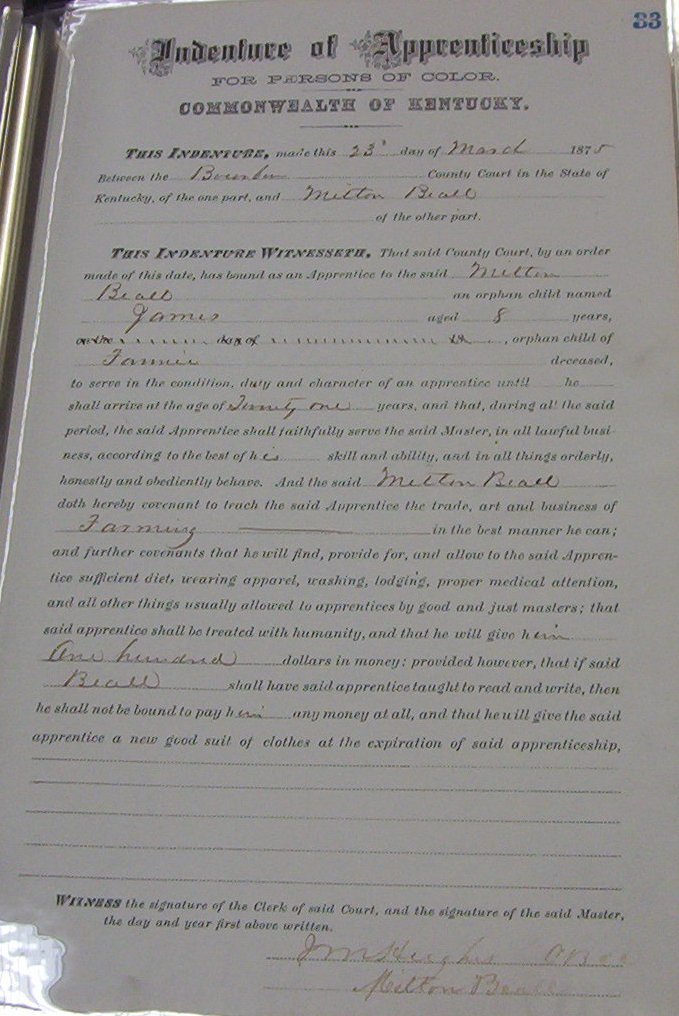 83
Indenture of Apprenticeship
FOR PERSONS OF COLOR.
COMMONWEALTH OF KENTUCKY.
THIS INDENTURE, made this 23d day of March 1875
Between the Bourbon County Court in the State of
Kentucky, of the one part, and Milton Beall
of the other part.
THIS INDENTURE WITNESSETH, That said County Court, by an order
made of this date, has bound as an Apprentice to the said Milton
Beall an orphan child named
James aged 8 years,
on the day of 18 , orphan child of
Fannie deceased,
to serve in the condition, duty and character of an apprentice until he
shall arrive at the age of Twenty one years, and that, during all the said
period, the said Apprentice shall faithfully serve the said Master, in all lawful busi-
ness, according to the best of his skill and ability, and in all things orderly,
honestly and obediently behave. And the said Milton Beall
doth hereby covenant to teach the said Apprentice the trade, art and business of
Farming in the best manner he can;
and further covenants that he will find, provide for, and allow to the said Appren-
tice sufficient diet, wearing apparel, washing, lodging, proper medical attention,
and all other things usually allowed to apprentices by good and just masters; that
said apprentice shall be treated with humanity, and that he will give him
One hundred dollars in money; provided however, that if said
Beall shall have said apprentice taught to read and write, then
he shall not be bound to pay him any money at all, and that he will give the said
apprentice a new good suit of clothes at the expiration of said apprenticeship,
WITNESS the signature of the Clerk of said Court, and the signature of the said Master,
the day and year first above written.
Hughes
Milton Beall